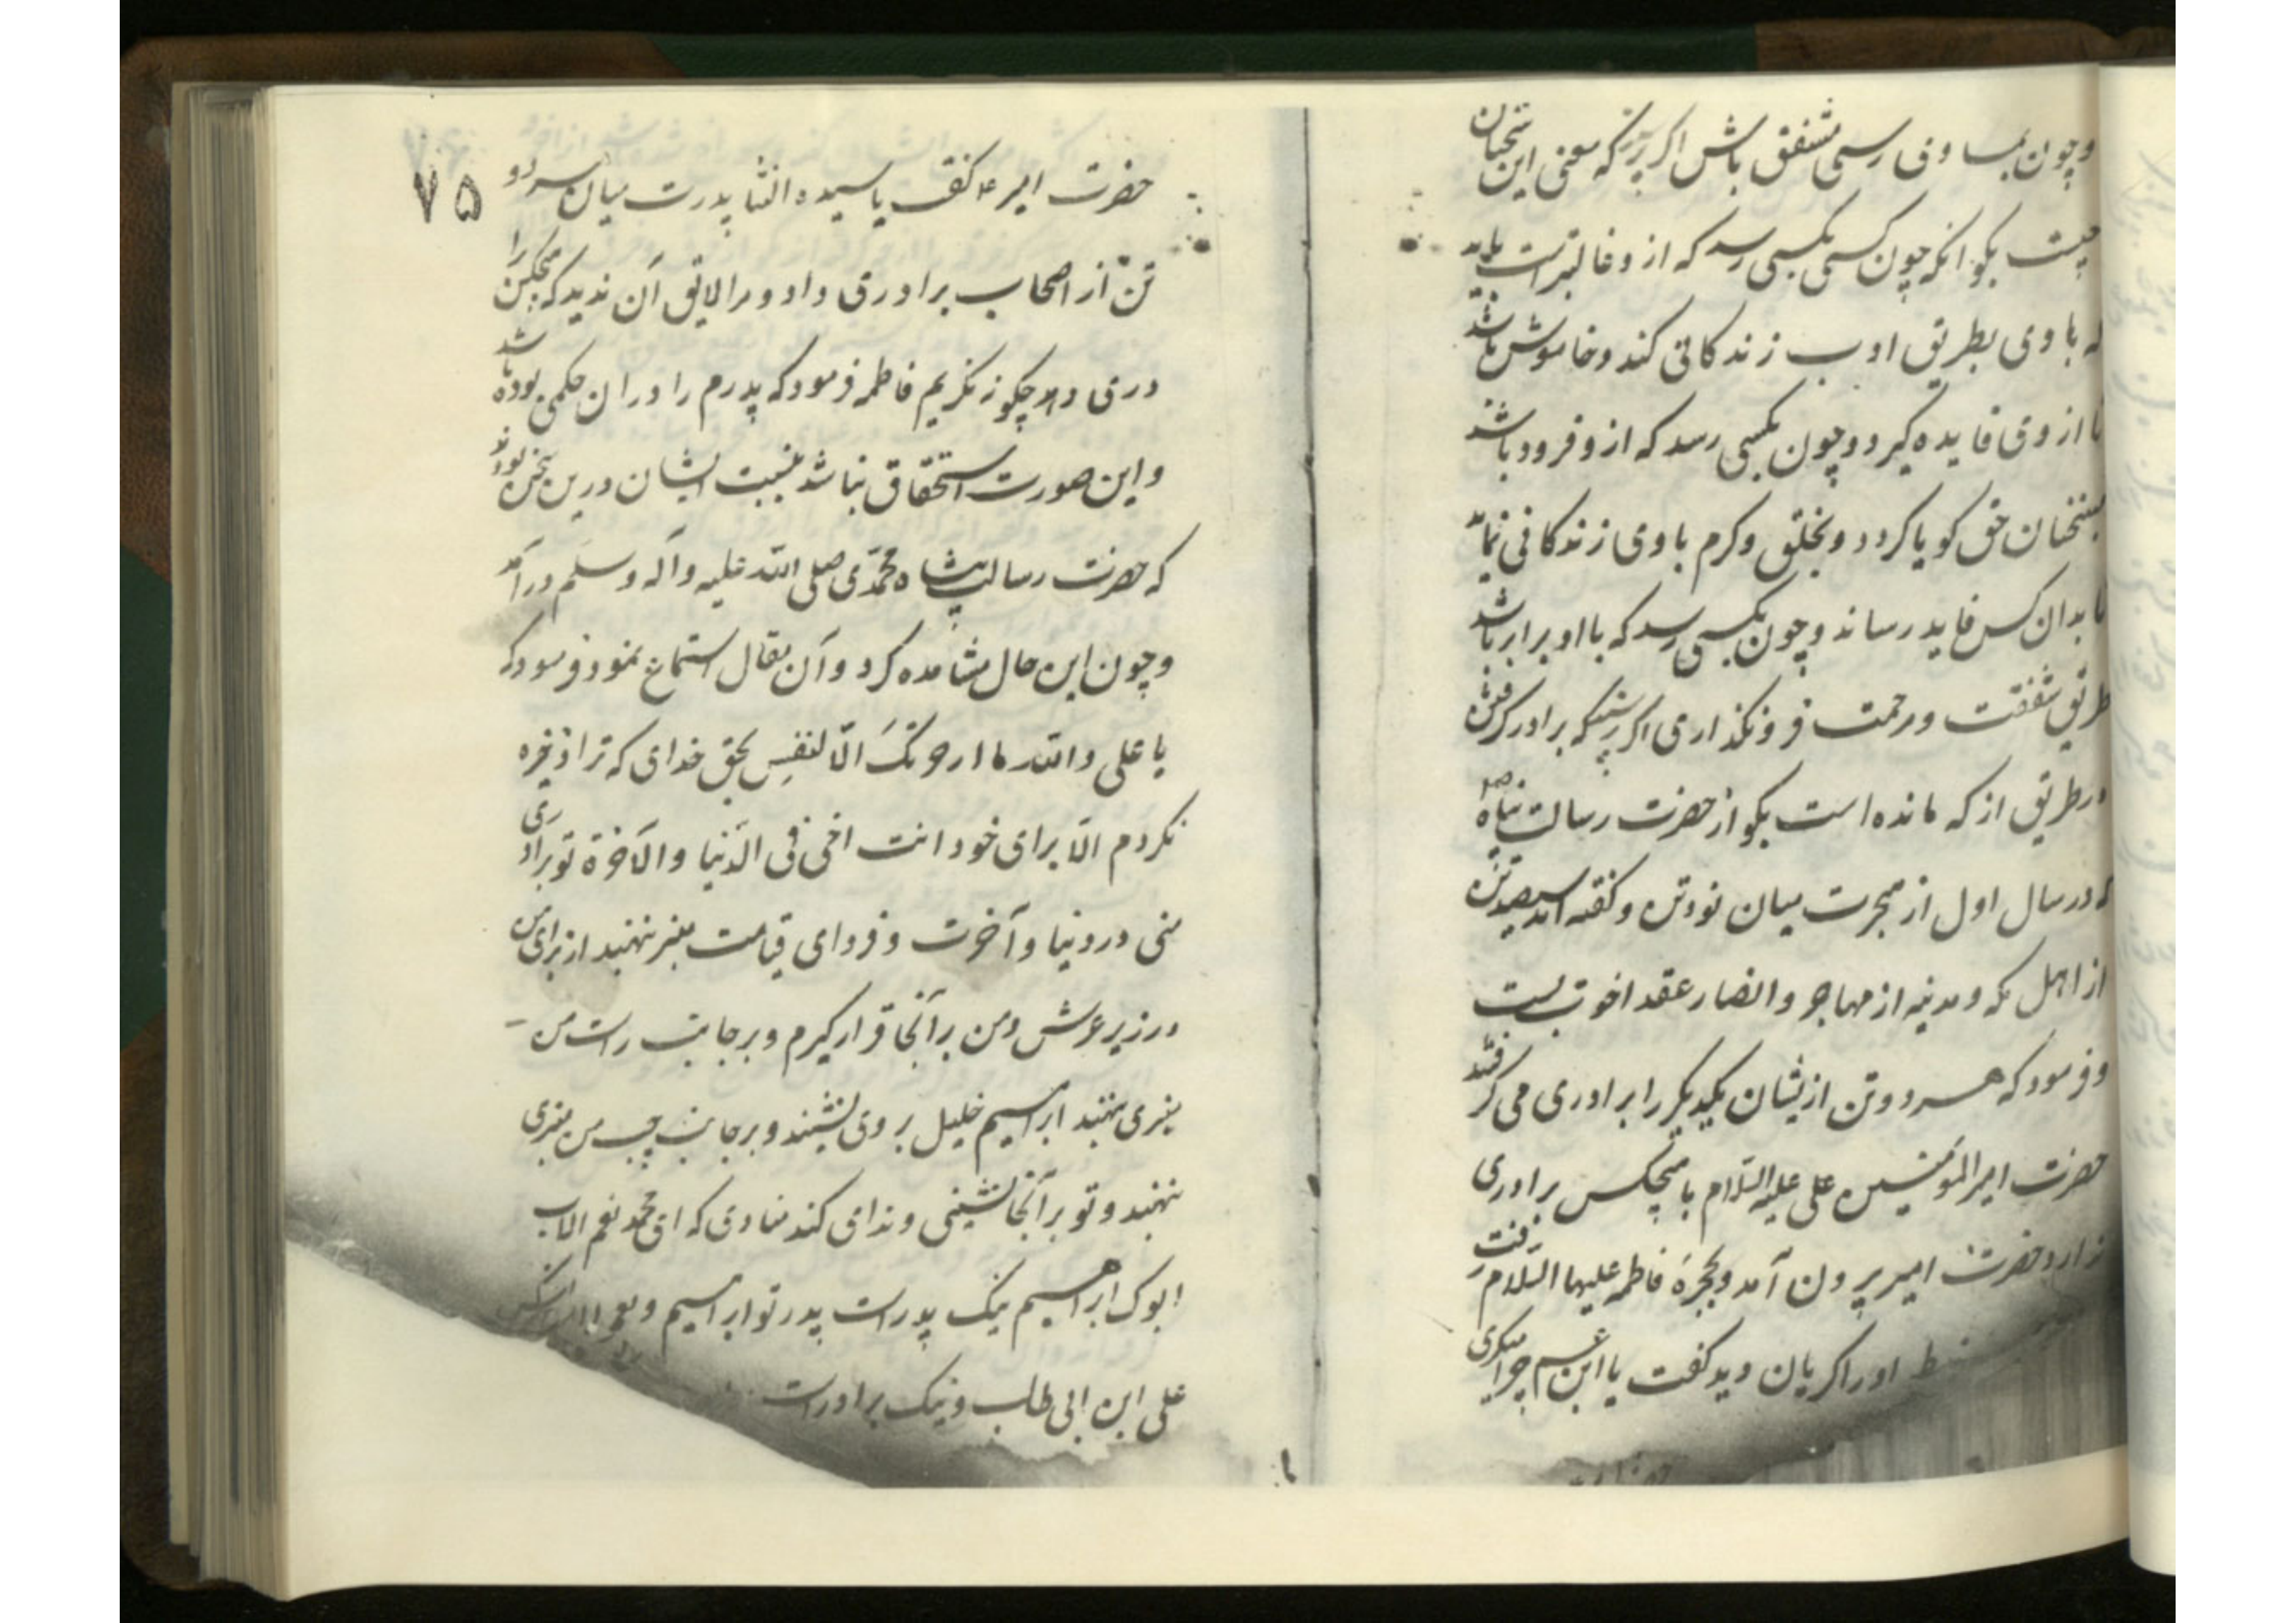 وچون بمساوی رسی مشفق باش اگر پرسند که معنی این سخنان
چیست بگو انکه چون کسی بکسی رسد که از و غالبتر است باید
که با وی بطریق ادب زندگانی کند و خاموش باشد
تا از وی فایده گیرد و چون بکسی رسد که از و فرود باشد
بسخنان حق گویا گردد و بخلق و کرم با وی زندگانی نماید
تا بدان کس فایده رساند و چون بکسی رسد که با او برابر باشد
طریق شفقت و رحمت فرو نگذاری اگر پرسند که برادر گرفتن
در طریق از که مانده است بگو از حضرت رسالت پناه
که در سال اول از هجرت میان نود تن و گفته اند سیصد تن
از اهل مکه و مدینه از مهاجر و انصار عقد اخوت بست
و فرمود که هر دو تن ازیشان یکدیگر را برادری می گرفتند
حضرت امیرالمؤمنین علی علیه السّلام با هیچکس برادری
نداد حضرت امیر بیرون آمد و بحجرهٔ فاطمه علیها السلام رفت
او را گریان دید گفت یا ابن عم چرا میگری
۷۵
حضرت امیر ع گفت یا سیدة النسا پدرت میان هر دو
تن از اصحاب برادری داد و مرا لایق آن ندید که با هیچکس
دری دهد چگونه نگریم فاطمه فرمود که پدرم را در ان حکمی بوده باشد
و این صورت استحقاق نباشد بنسبت ایشان درین سخن بودند
که حضرت رسالت پناه محمّدی صلی الله علیه و آله و سلم درآمد
و چون این حال مشاهده کرد و آن مقال استماع نمود فرمود که
یا علی والله ما ارجونک الّا لنفسی بحق خدای که ترا ذخیره
نکردم الّا برای خود انت اخی فی الدّنیا و الآخرة تو برادری
منی در دنیا و آخرت و فردای قیامت منبر نهند از برای من
در زیر عرش و من بر آنجا قرار گیرم و بر جانب راست من
منبری نهند ابراهیم خلیل بر وی نشیند و بر جانب چپ من منبری
نهند و تو بر آنجا نشینی و ندای کند منادی که ای محمد نعم الاب
ابوک ابراهیم نیک پدرست پدر تو ابراهیم و نعم
علی ابن ابی طالب و نیک برادرست